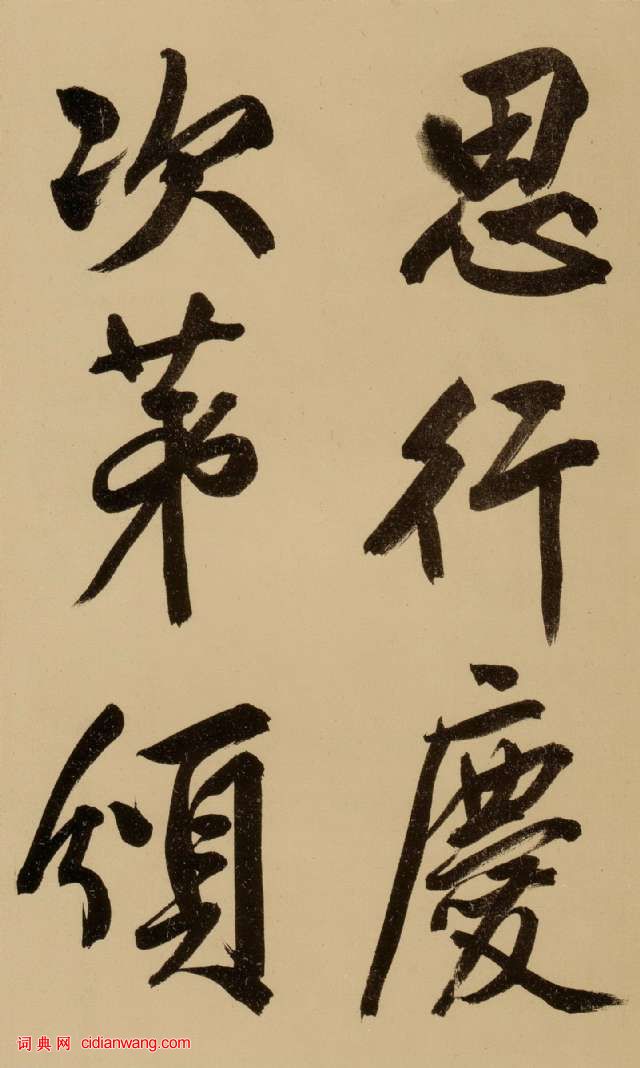 思行慶
次第頒
词典网 cidianwang.com